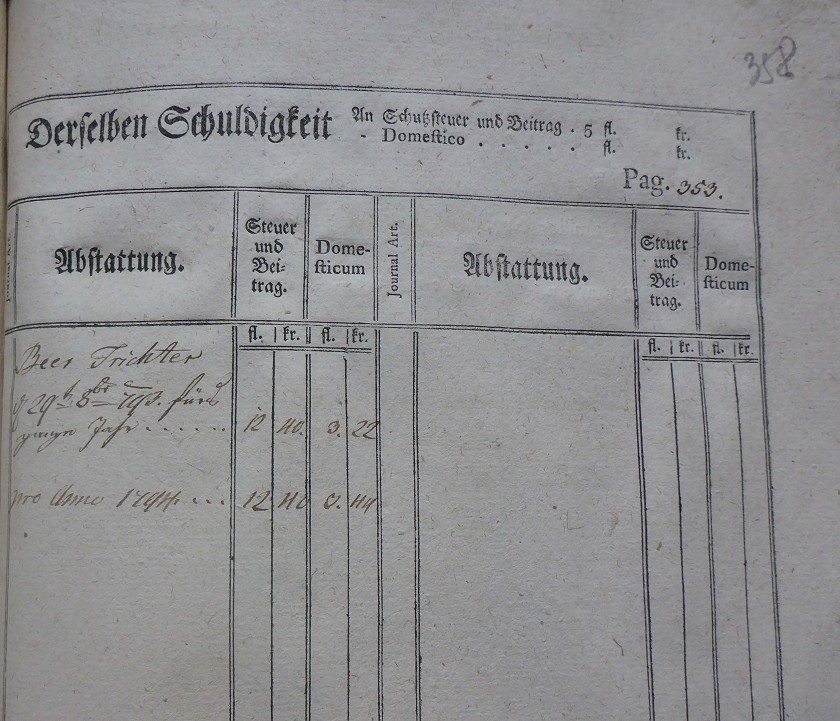 358
Derselben Schuldigkeit An Schutzsteuer und Beitrag . 5 fl. kr.
- Domestico . . . . . fl. kr.
Pag. 353.
Journal Art.
Abstattung.
Steuer
und
Bei-
trag.
Dome-
sticum
Journal Art.
Abstattung.
Steuer
und
Bei-
trag.
Dome-
sticum
fl. kr. fl. kr. fl. kr. fl. kr.
Beer Trichter
29t 8br 793. fürs
Jahr . . . . . . 12 40. 3. 22
pro Anno 1794. . . . 12 40 3. 44